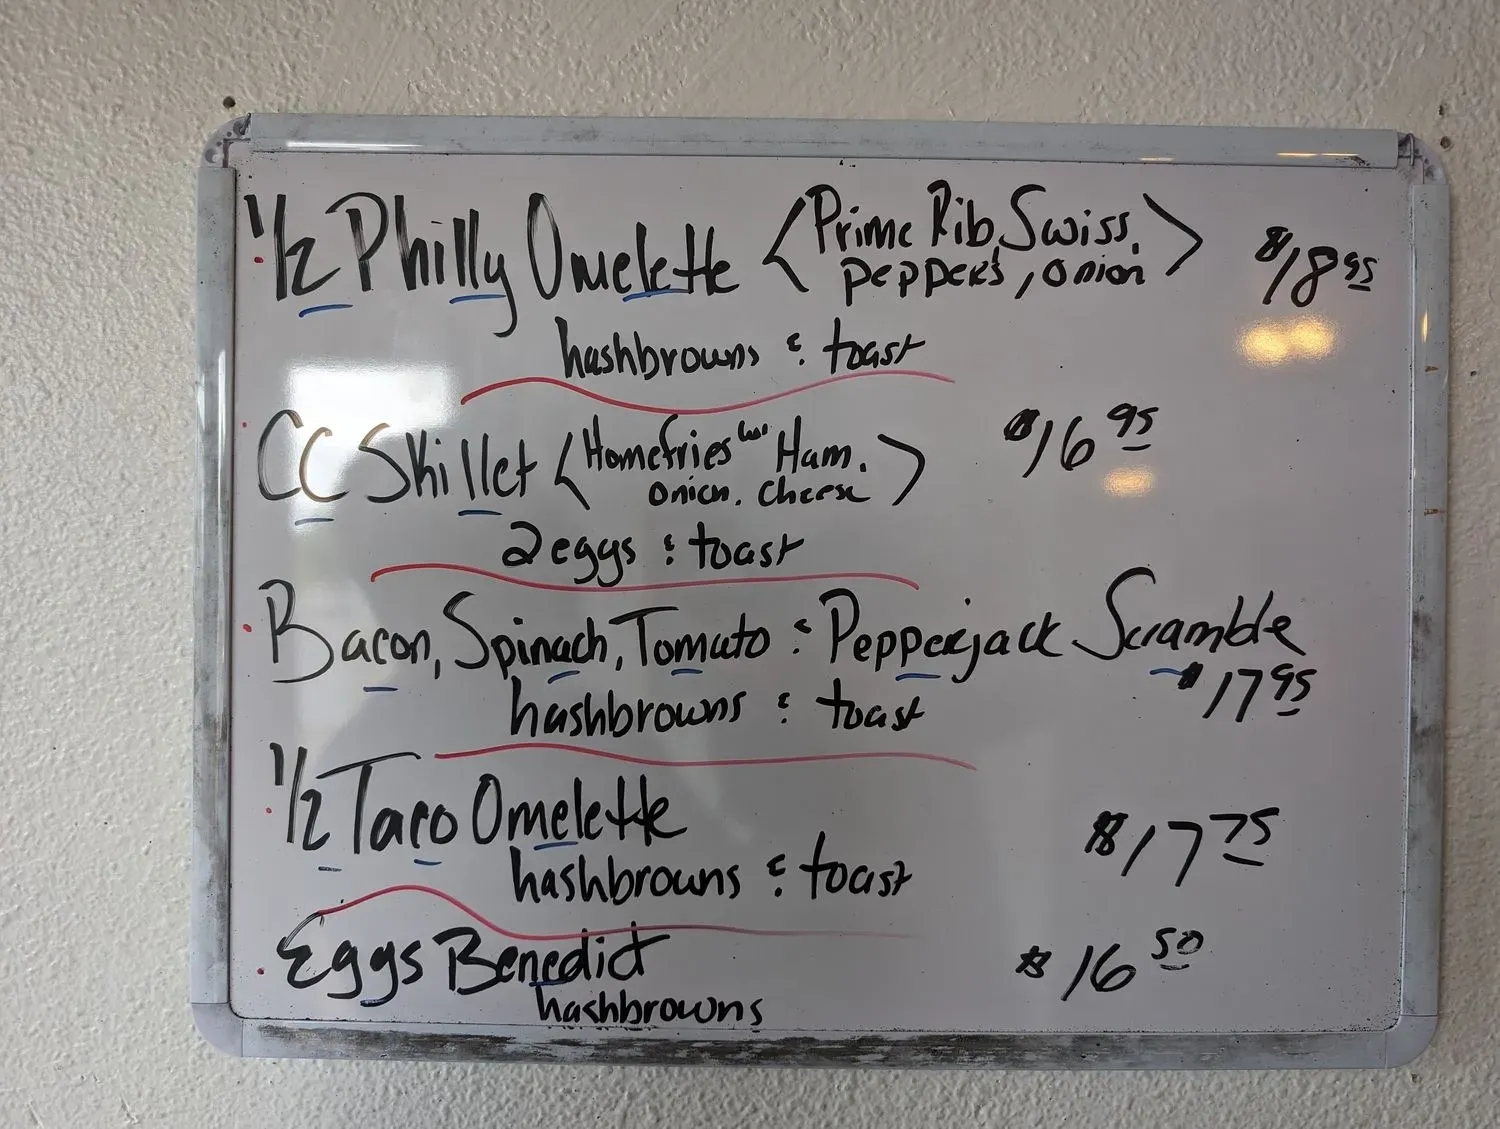 1/2 Philly Omelette <Prime Rib, Swiss, peppers, onion> $18.95
hashbrowns & toast
CC Skillet <Homefries w/ Ham, onion, cheese> $16.95
2 eggs & toast
Bacon, Spinach, Tomato & Pepperjack Scramble
hashbrowns & toast $17.95
1/2 Taco Omelette
hashbrowns & toast $17.75
Eggs Benedict $16.50
hashbrowns